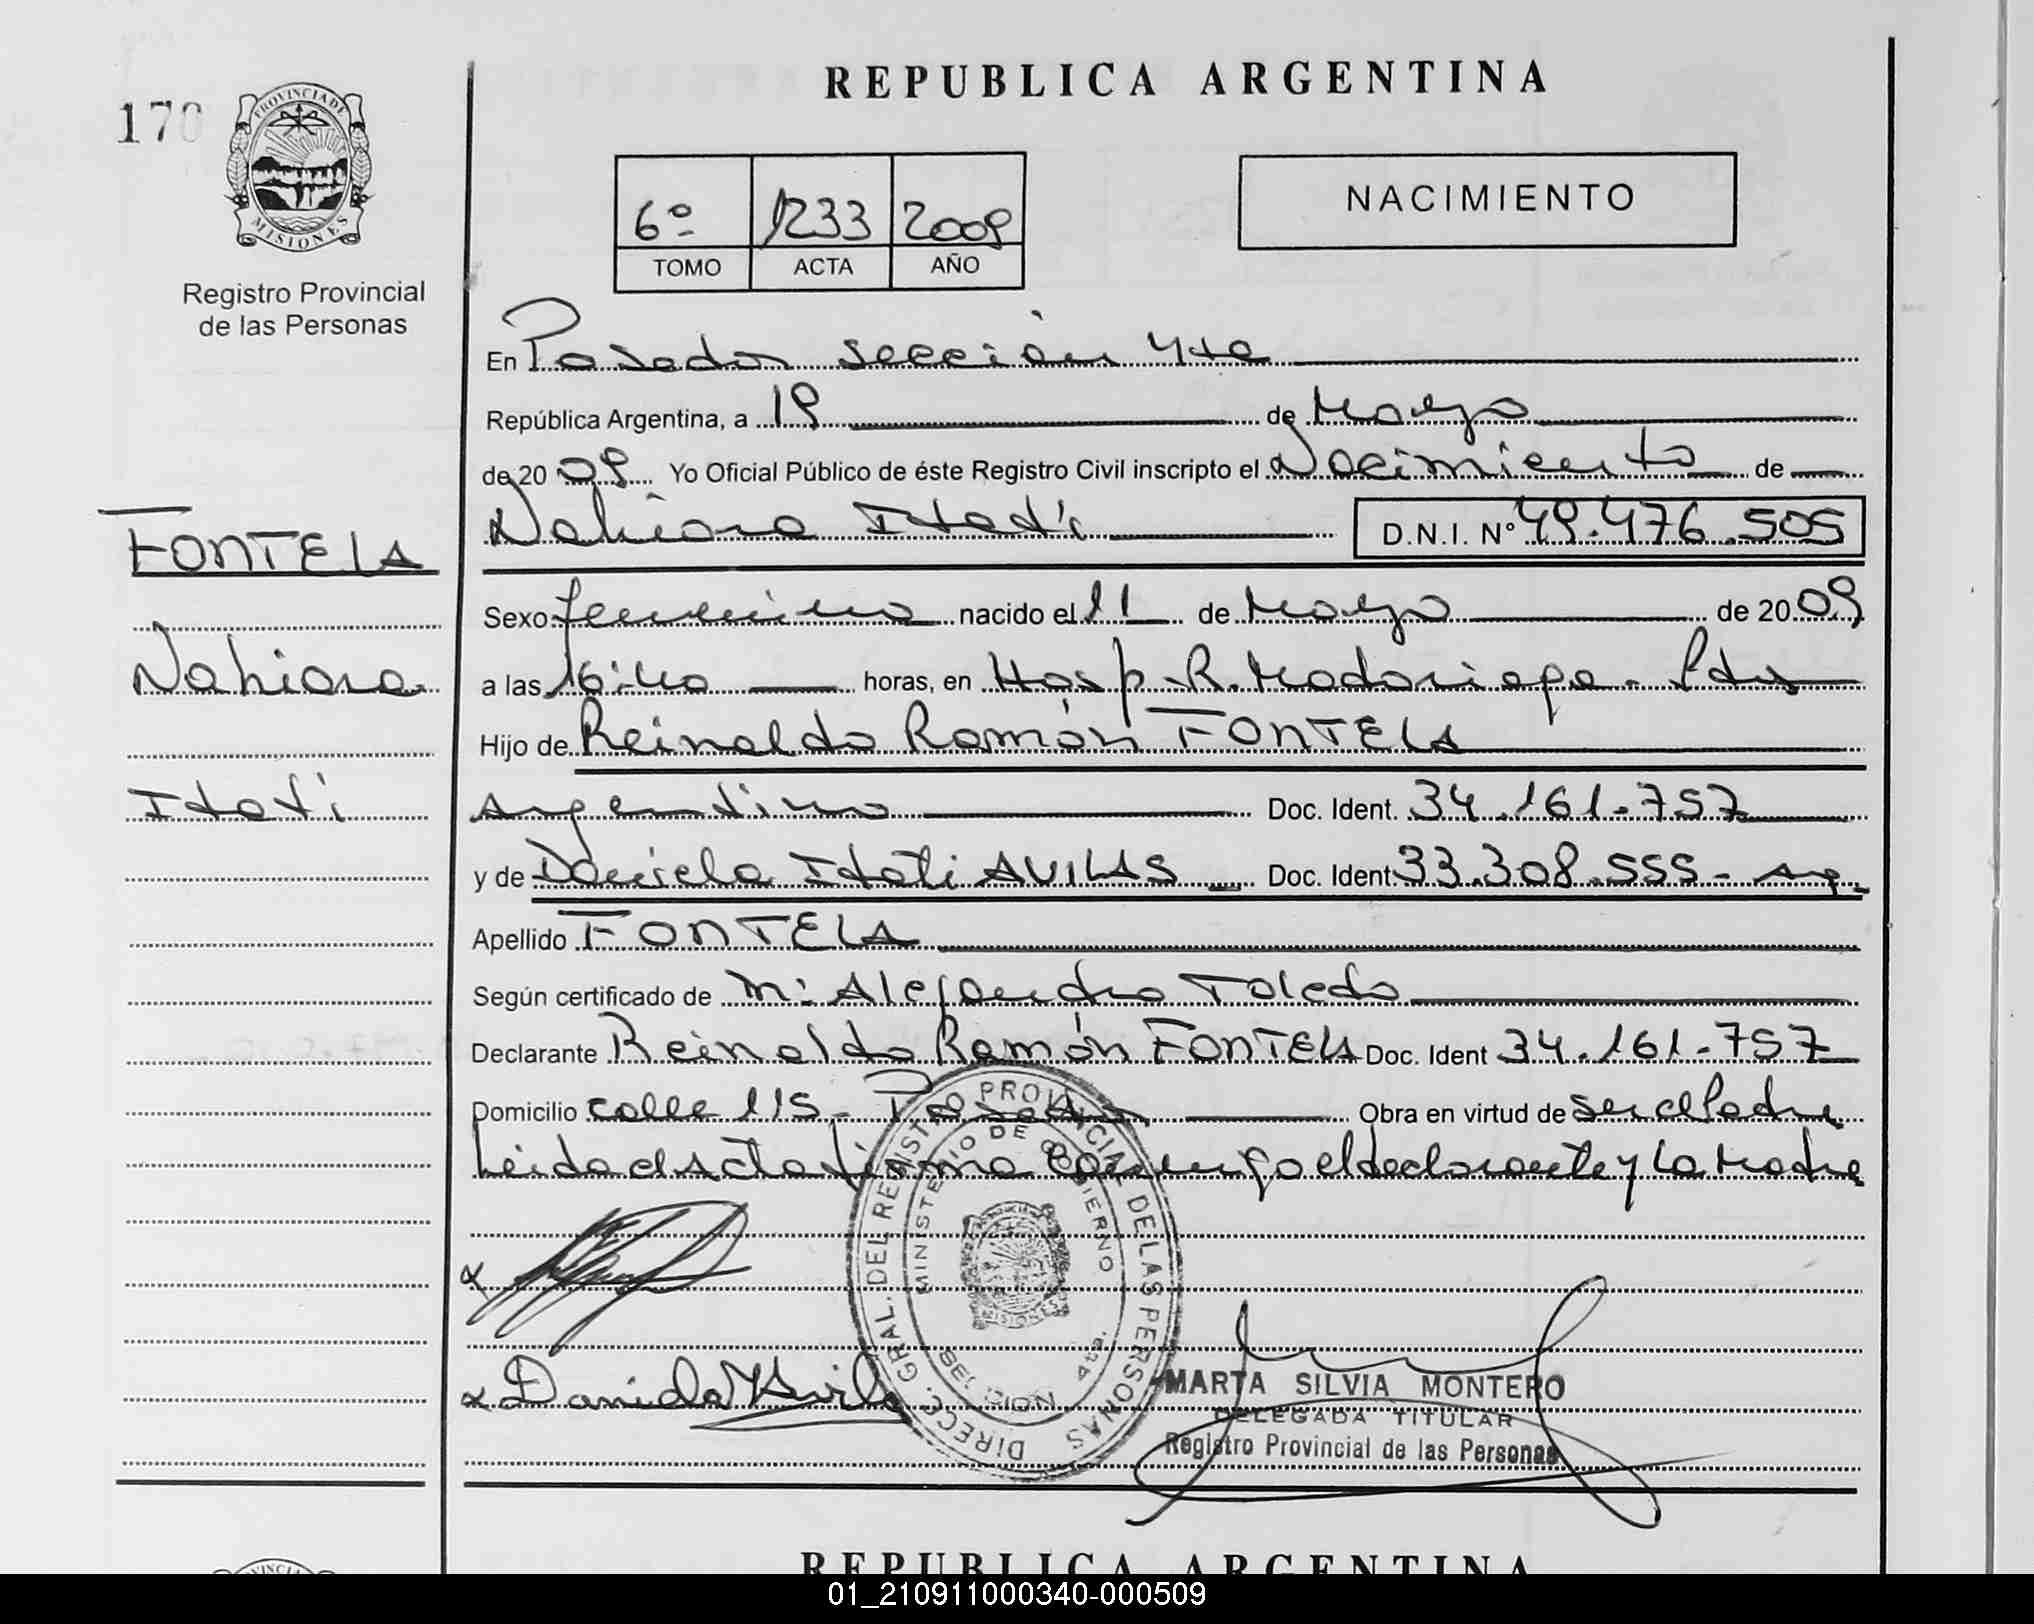 REPUBLICA ARGENTINA
170
PROVINCIA DE
MISIONES
Registro Provincial
de las Personas
6º 1233 2009
TOMO ACTA AÑO
NACIMIENTO
En Posadas sección 4ta
República Argentina, a 19 de Marzo
de 2009 Yo Oficial Público de éste Registro Civil inscripto el Nacimiento de
Nahiara Itatí D.N.I. Nº 49.476.505
FONTELA
Nahiara
Itatí
Sexo femenino nacido el 11 de Marzo de 2009
a las 16:40 horas, en Hosp. R. Madariaga - Pdas
Hijo de Reinaldo Ramón FONTELA
Argentino Doc. Ident. 34.161.757
y de Daniela Itatí AVILAS Doc. Ident. 33.308.555 - Arg.
Apellido FONTELA
Según certificado de M: Alejandra Toledo
Declarante Reinaldo Ramón FONTELA Doc. Ident 34.161.757
Domicilio calle 115 - Posadas Obra en virtud de ser el Padre
Leida el Acta firma conmigo el declarante y la Madre
DIRECC. GRAL. DEL REGISTRO PROVINCIAL DE LAS PERSONAS
MINISTERIO DE GOBIERNO
MISIONES
SECCION 4ta.
Daniela Avila
MARTA SILVIA MONTERO
DELEGADA TITULAR
Registro Provincial de las Personas
REPUBLICA ARGENTINA
01_210911000340-000509